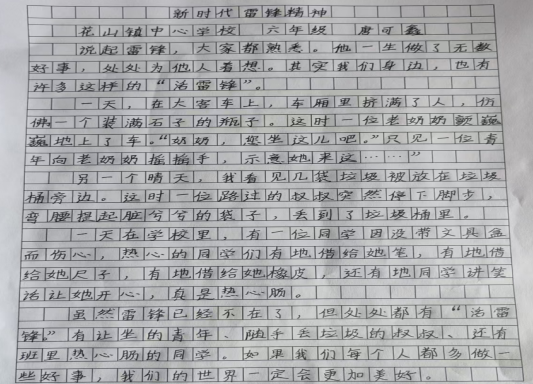 新时代雷锋精神
花山镇中心学校 六年级 唐可鑫
说起雷锋，大家都熟悉。他一生做了无数
好事，处处为他人着想。其实我们身边，也有
许多这样的“活雷锋”。
一天，在大客车上，车厢里挤满了人，仿
佛一个装满石子的瓶子。这时一位老奶奶颤巍
巍地上了车。“奶奶，您坐这儿吧。”只见一位青
年向老奶奶摇摇手，示意她来这……”
另一个晴天，我看见几袋垃圾被放在垃圾
桶旁边。这时一位路过的叔叔突然停下脚步，
弯腰提起脏兮兮的袋子，丢到了垃圾桶里。
一天在学校里，有一位同学因没带文具盒
而伤心，热心的同学们有地借给她笔，有地借
给她尺子，有地借给她橡皮，还有地同学讲笑
话让她开心，真是热心肠。
虽然雷锋已经不在了，但处处都有“活雷
锋。”有让坐的青年、随手丢垃圾的叔叔、还有
班里热心肠的同学。如果我们每个人都多做一
些好事，我们的世界一定会更加美好。